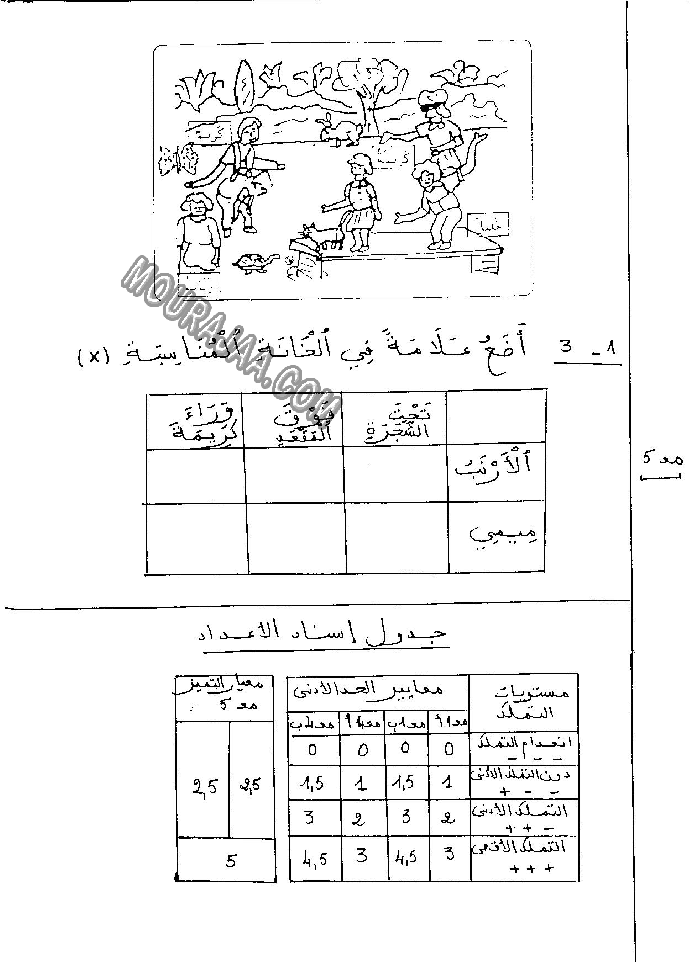 كريمة
كريمة
خليل
MOURAJAA.COM
3 - 1 أَضَعُ عَلَامَةً فِي ٱلْخَانَةِ ٱلْمُنَاسِبَةِ (x)
تَحْتَ الشَّجَرَةِ
فَوْقَ المَقْعَدِ
وَرَاءَ كَرِيمَةَ
ٱلْأَرْنَبُ
مِيمِي
مع 5
جدول إسناد الأعداد
مستويات التملك
معايير الحد الأدنى
معيار التميز مع 5
مع 1 أ
مع 1 ب
مع 2 أ
مع 2 ب
انعدام التملك - - -
0 0 0 0
دون التملك الأدنى + - -
1 1,5 1 1,5
2,5 2,5
التملك الأدنى + + -
2 3 2 3
التملك الأقصى + + +
3 4,5 3 4,5
5